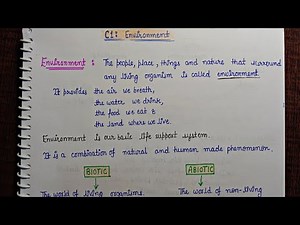 C1: Environment
Environment : The people, place, things and nature that surround
any living organism is called environment
It provides the air we breath,
the water we drink,
the food we eat &
the land where we live.
Environment is our basic life support system.
It is a combination of natural and human made phenomenon.
BIOTIC ABIOTIC
The world of living organisms. The world of non-living